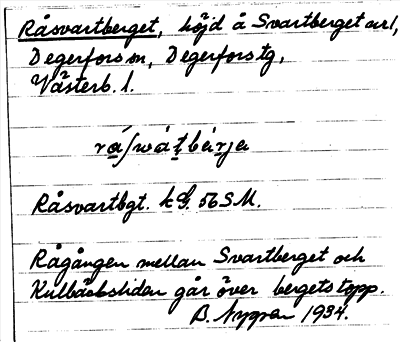 Råsvartberget, höjd å Svartberget url,
Degerfors sn, Degerfors tg,
Västerb. l.
Råsvartbgt. 56 SM.
Rågången mellan Svartberget och
Kulbäcksliden går över bergets topp.
B. Nygren 1934.